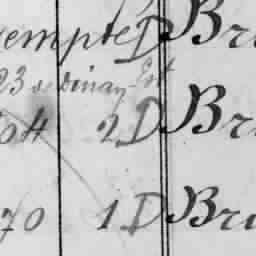 empte D Br
23 de Dinan Est
64 2 D Br
70 1 D Bri